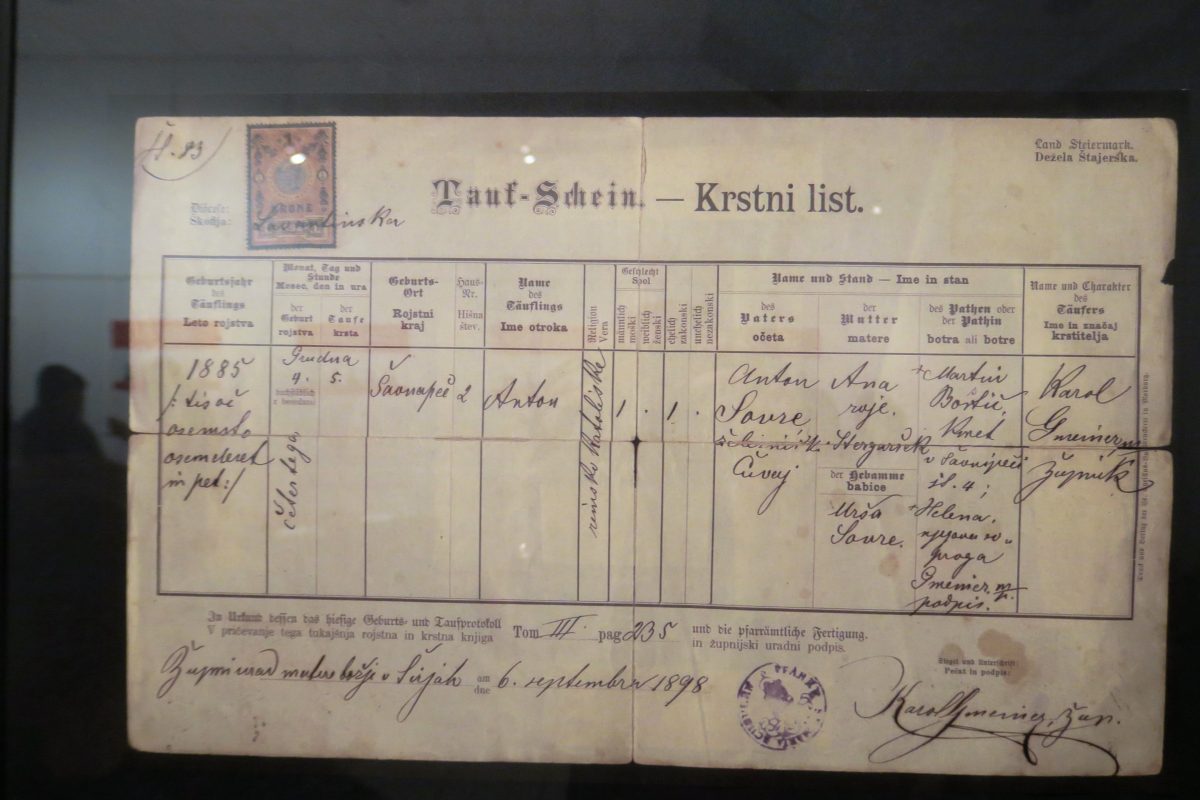 Št. 83
1
KRONE
Land Steiermark.
Dežela Štajerska.
Tauf-Schein. — Krstni list.
Diöcese:
Škofija:
Lavantinska
Geburtsjahr
des
Täuflings
Leto rojstva
Monat, Tag und
Stunde
Mesec, den in ura
der
Geburt
rojstva
der
Taufe
krsta
Geburts-
Ort
Rojstni
kraj
Haus-
Nr.
Hišna
štev.
Name
des
Täuflings
Ime otroka
Religion
Vera
Geschlecht
Spol
männlich
moški
weiblich
ženski
ehelich
zakonski
unehelich
nezakonski
Name und Stand — Ime in stan
des
Vaters
očeta
der
Mutter
matere
des Pathen oder
der Pathin
botra ali botre
Name und Charakter
des
Täufers
Ime in značaj
krstitelja
1885
/: tisoč
osemsto
osemdeset
in pet :/
Grudna
4. 5.
buchstäblich
z besedami
četertega
Šavnapeč
2
Anton
rimsko katoliška
1 . 1 .
Anton
Sovre
čuvaj
Ana
roj.
Stergaršek
der Hebamme
babice
Urša
Sovre.
Martin
Boštič,
Kmet
v Šavnipeči
št. 4;
Helena,
njegova so-
proga
Gmeiner m/p.
podpis.
Karol
Gmeiner m/p
župnik
In Urkund dessen das hiesige Geburts- und Taufprotokoll
V pričevanje tega tukajšnja rojstna in krstna knjiga
Tom III. pag 235
und die pfarrämtliche Fertigung.
in župnijski uradni podpis.
Župni urad matere božje v Širjah
am
dne
6. septembra 1898
Siegel und Unterschrift:
Pečat in podpis:
Karol Gmeiner, žup.